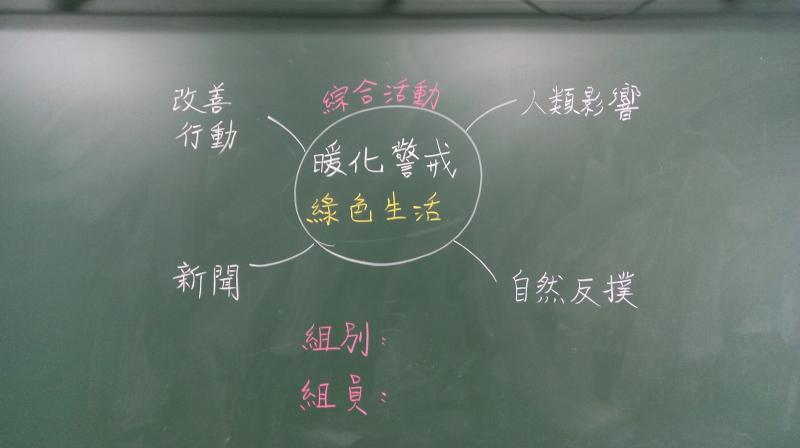 綜合活動
改善
行動
人類影響
暖化警戒
綠色生活
新聞
自然反撲
組別：
組員：